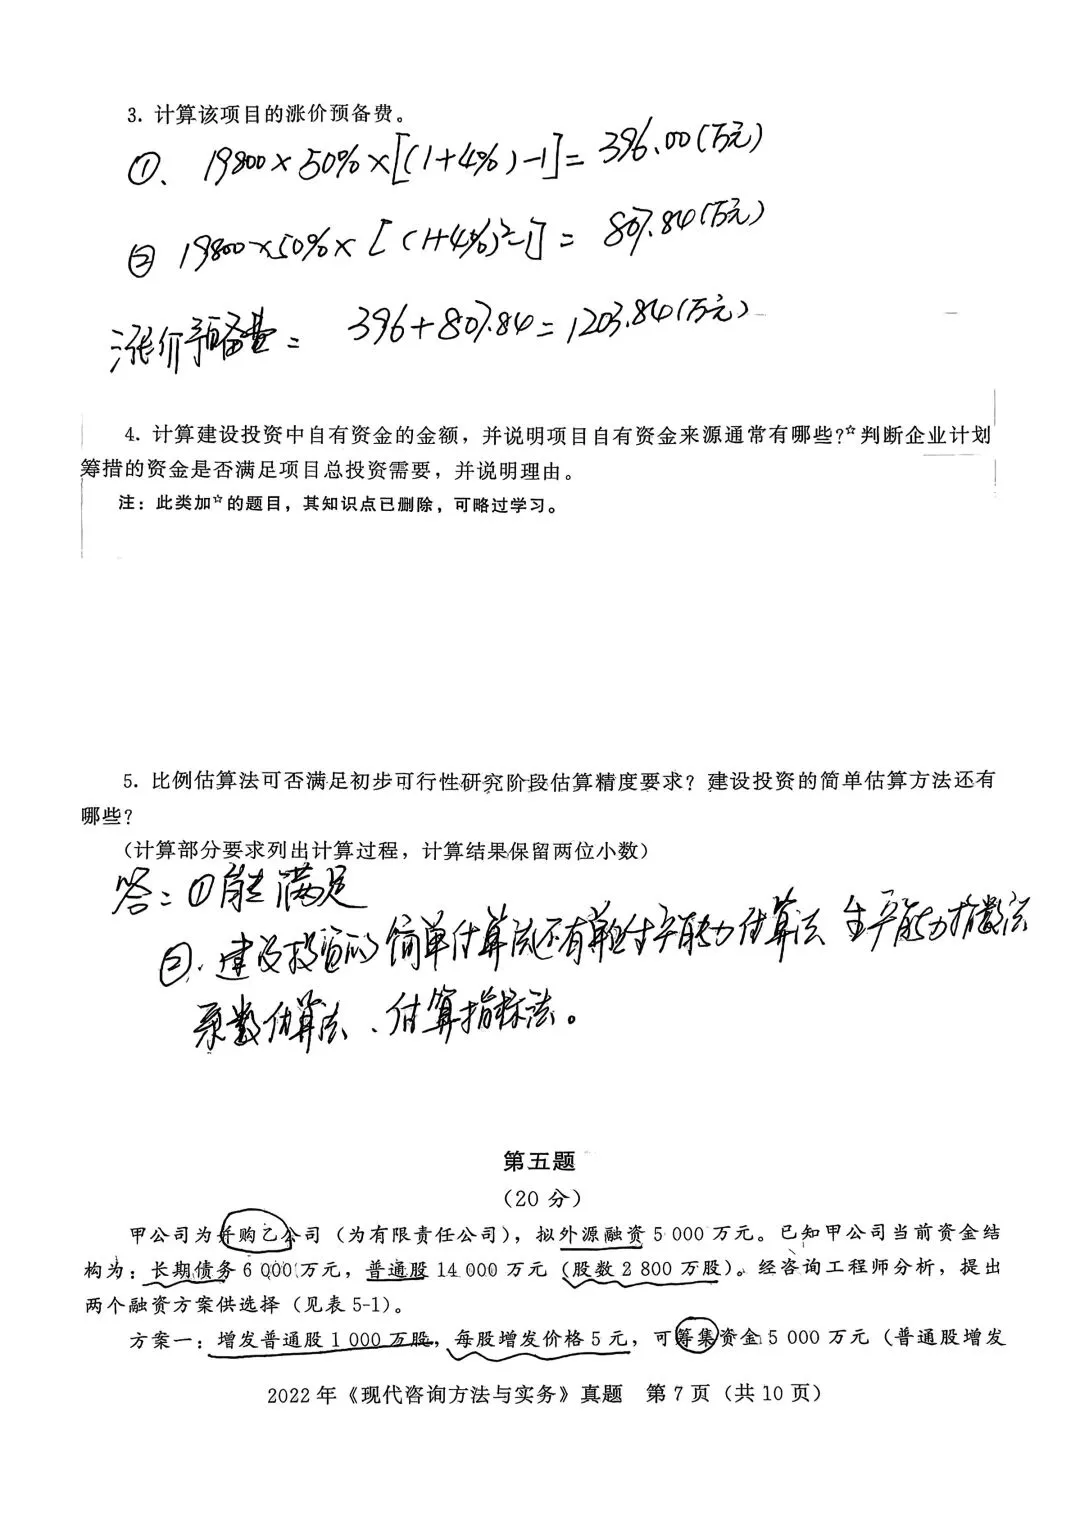 3. 计算该项目的涨价预备费。
①、19800×50%×[(1+4%)-1]=396.00(万元)
② 19800×50%×[(1+4%)²-1]=807.84(万元)
涨价预备费= 396+807.84=1203.84(万元)
4. 计算建设投资中自有资金的金额，并说明项目自有资金来源通常有哪些?☆判断企业计划
筹措的资金是否满足项目总投资需要，并说明理由。
注：此类加☆的题目，其知识点已删除，可略过学习。
5. 比例估算法可否满足初步可行性研究阶段估算精度要求？建设投资的简单估算方法还有
哪些？
（计算部分要求列出计算过程，计算结果保留两位小数）
答：①能满足
②.建设投资的简单估算法还有单位生产能力估算法 生产能力指数法
系数估算法、估算指标法。
第五题
（20 分）
甲公司为并购乙公司（为有限责任公司），拟外源融资 5 000 万元。已知甲公司当前资金结
构为：长期债务 6 000 万元，普通股 14 000 万元（股数 2 800 万股）。经咨询工程师分析，提出
两个融资方案供选择（见表 5-1）。
方案一：增发普通股 1 000 万股，每股增发价格 5 元，可筹集资金 5 000 万元（普通股增发
2022 年《现代咨询方法与实务》真题 第 7 页（共 10 页）